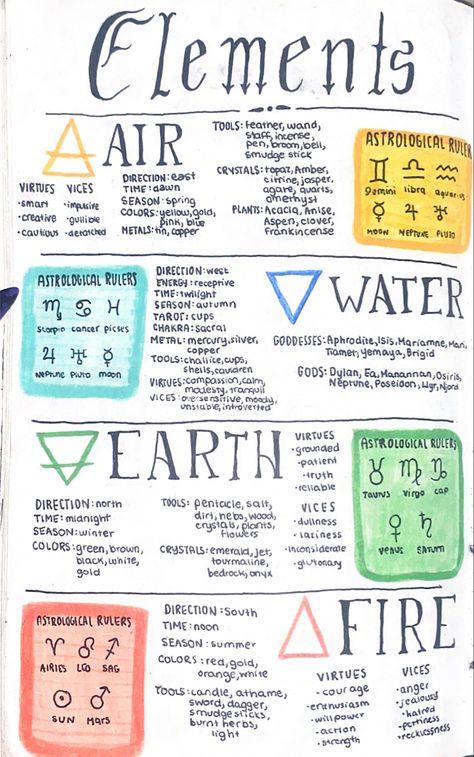 Elements
AIR
TOOLS: feather, wand,
staff, incense,
pen, broom, bell,
smudge stick
CRYSTALS: topaz, Amber,
citrine, jasper,
agate, quarts,
amethyst
PLANTS: Acacia, Anise,
Aspen, clover,
Frankincense
VIRTUES
• smart
• creative
• cautious
VICES
• impulsive
• gullible
• detatched
DIRECTION: east
TIME: dawn
SEASON: spring
COLORS: yellow, gold,
pink, blue
METALS: tin, copper
ASTROLOGICAL RULERS
♊ ♎ ♒
Gemini libra aquarius
☿ ♃ ♅
MOON NEPTUNE PLUTO
ASTROLOGICAL RULERS
♏ ♋ ♓
Scorpio cancer pisces
♃ ♅ ☿
Neptune Pluto moon
DIRECTION: west
ENERGY: receptive
TIME: twilight
SEASON: autumn
TAROT: cups
CHAKRA: sacral
METAL: mercury, silver,
copper
TOOLS: challice, cups,
shells, cauldren
VIRTUES: compassion, calm,
modesty, tranquil
VICES: oversensitive, moody,
unstable, introverted
WATER
GODDESSES: Aphrodite, Isis, Mariamne, Mari,
Tiamet, Yemaya, Brigid
GODS: Dylan, Ea, Manannan, Osiris,
Neptune, Poseidon, Njord
EARTH
DIRECTION: north
TIME: midnight
SEASON: winter
COLORS: green, brown,
black, white,
gold
TOOLS: pentacle, salt,
dirt, herbs, wood,
crystals, plants,
flowers
CRYSTALS: emerald, jet,
tourmaline,
bedrock, onyx
VIRTUES
• grounded
• patient
• truth
• reliable
VICES
• dullness
• laziness
• inconsiderate
• glutonary
ASTROLOGICAL RULERS
♉ ♍ ♑
Taurus Virgo cap
♀ ♄
Venus Saturn
ASTROLOGICAL RULERS
♈ ♌ ♐
AIRIES LEO SAG
☉ ♂
SUN Mars
DIRECTION: South
TIME: noon
SEASON: summer
COLORS: red, gold,
orange, white
TOOLS: candle, athame,
sword, dagger,
smudge sticks,
burnt herbs,
light
FIRE
VIRTUES
• courage
• enthusiasm
• willpower
• action
• strength
VICES
• anger
• jealousy
• hatred
• pettiness
• recklessness